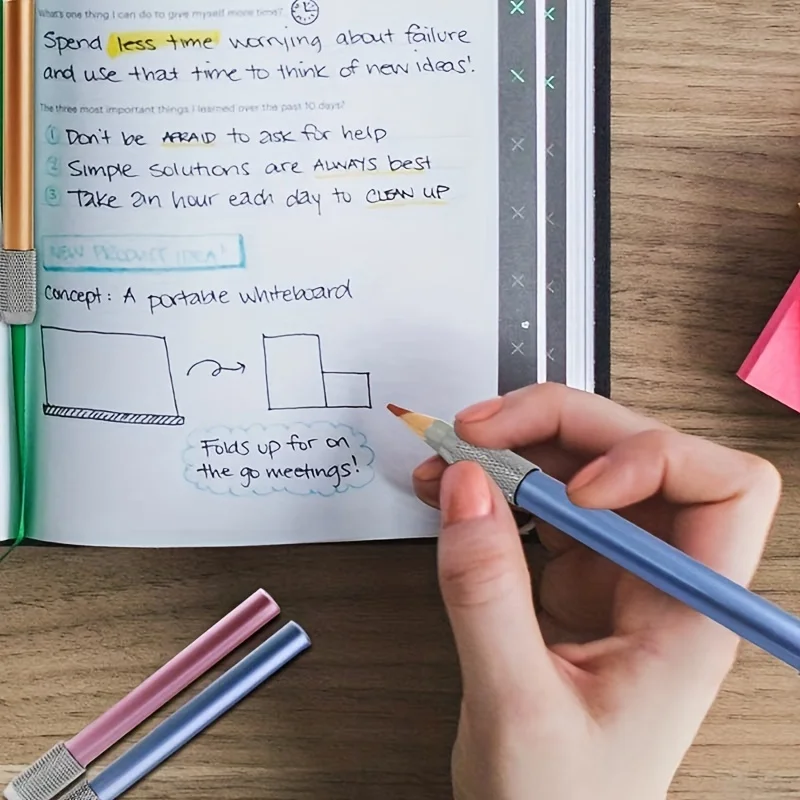 What's one thing I can do to give myself more time?
Spend less time worrying about failure
and use that time to think of new ideas!
The three most important things I learned over the past 10 days?
1 Don't be AFRAID to ask for help
2 Simple solutions are ALWAYS best
3 Take an hour each day to CLEAN UP
NEW PRODUCT IDEA!
concept: A portable whiteboard
Folds up for on
the go meetings!